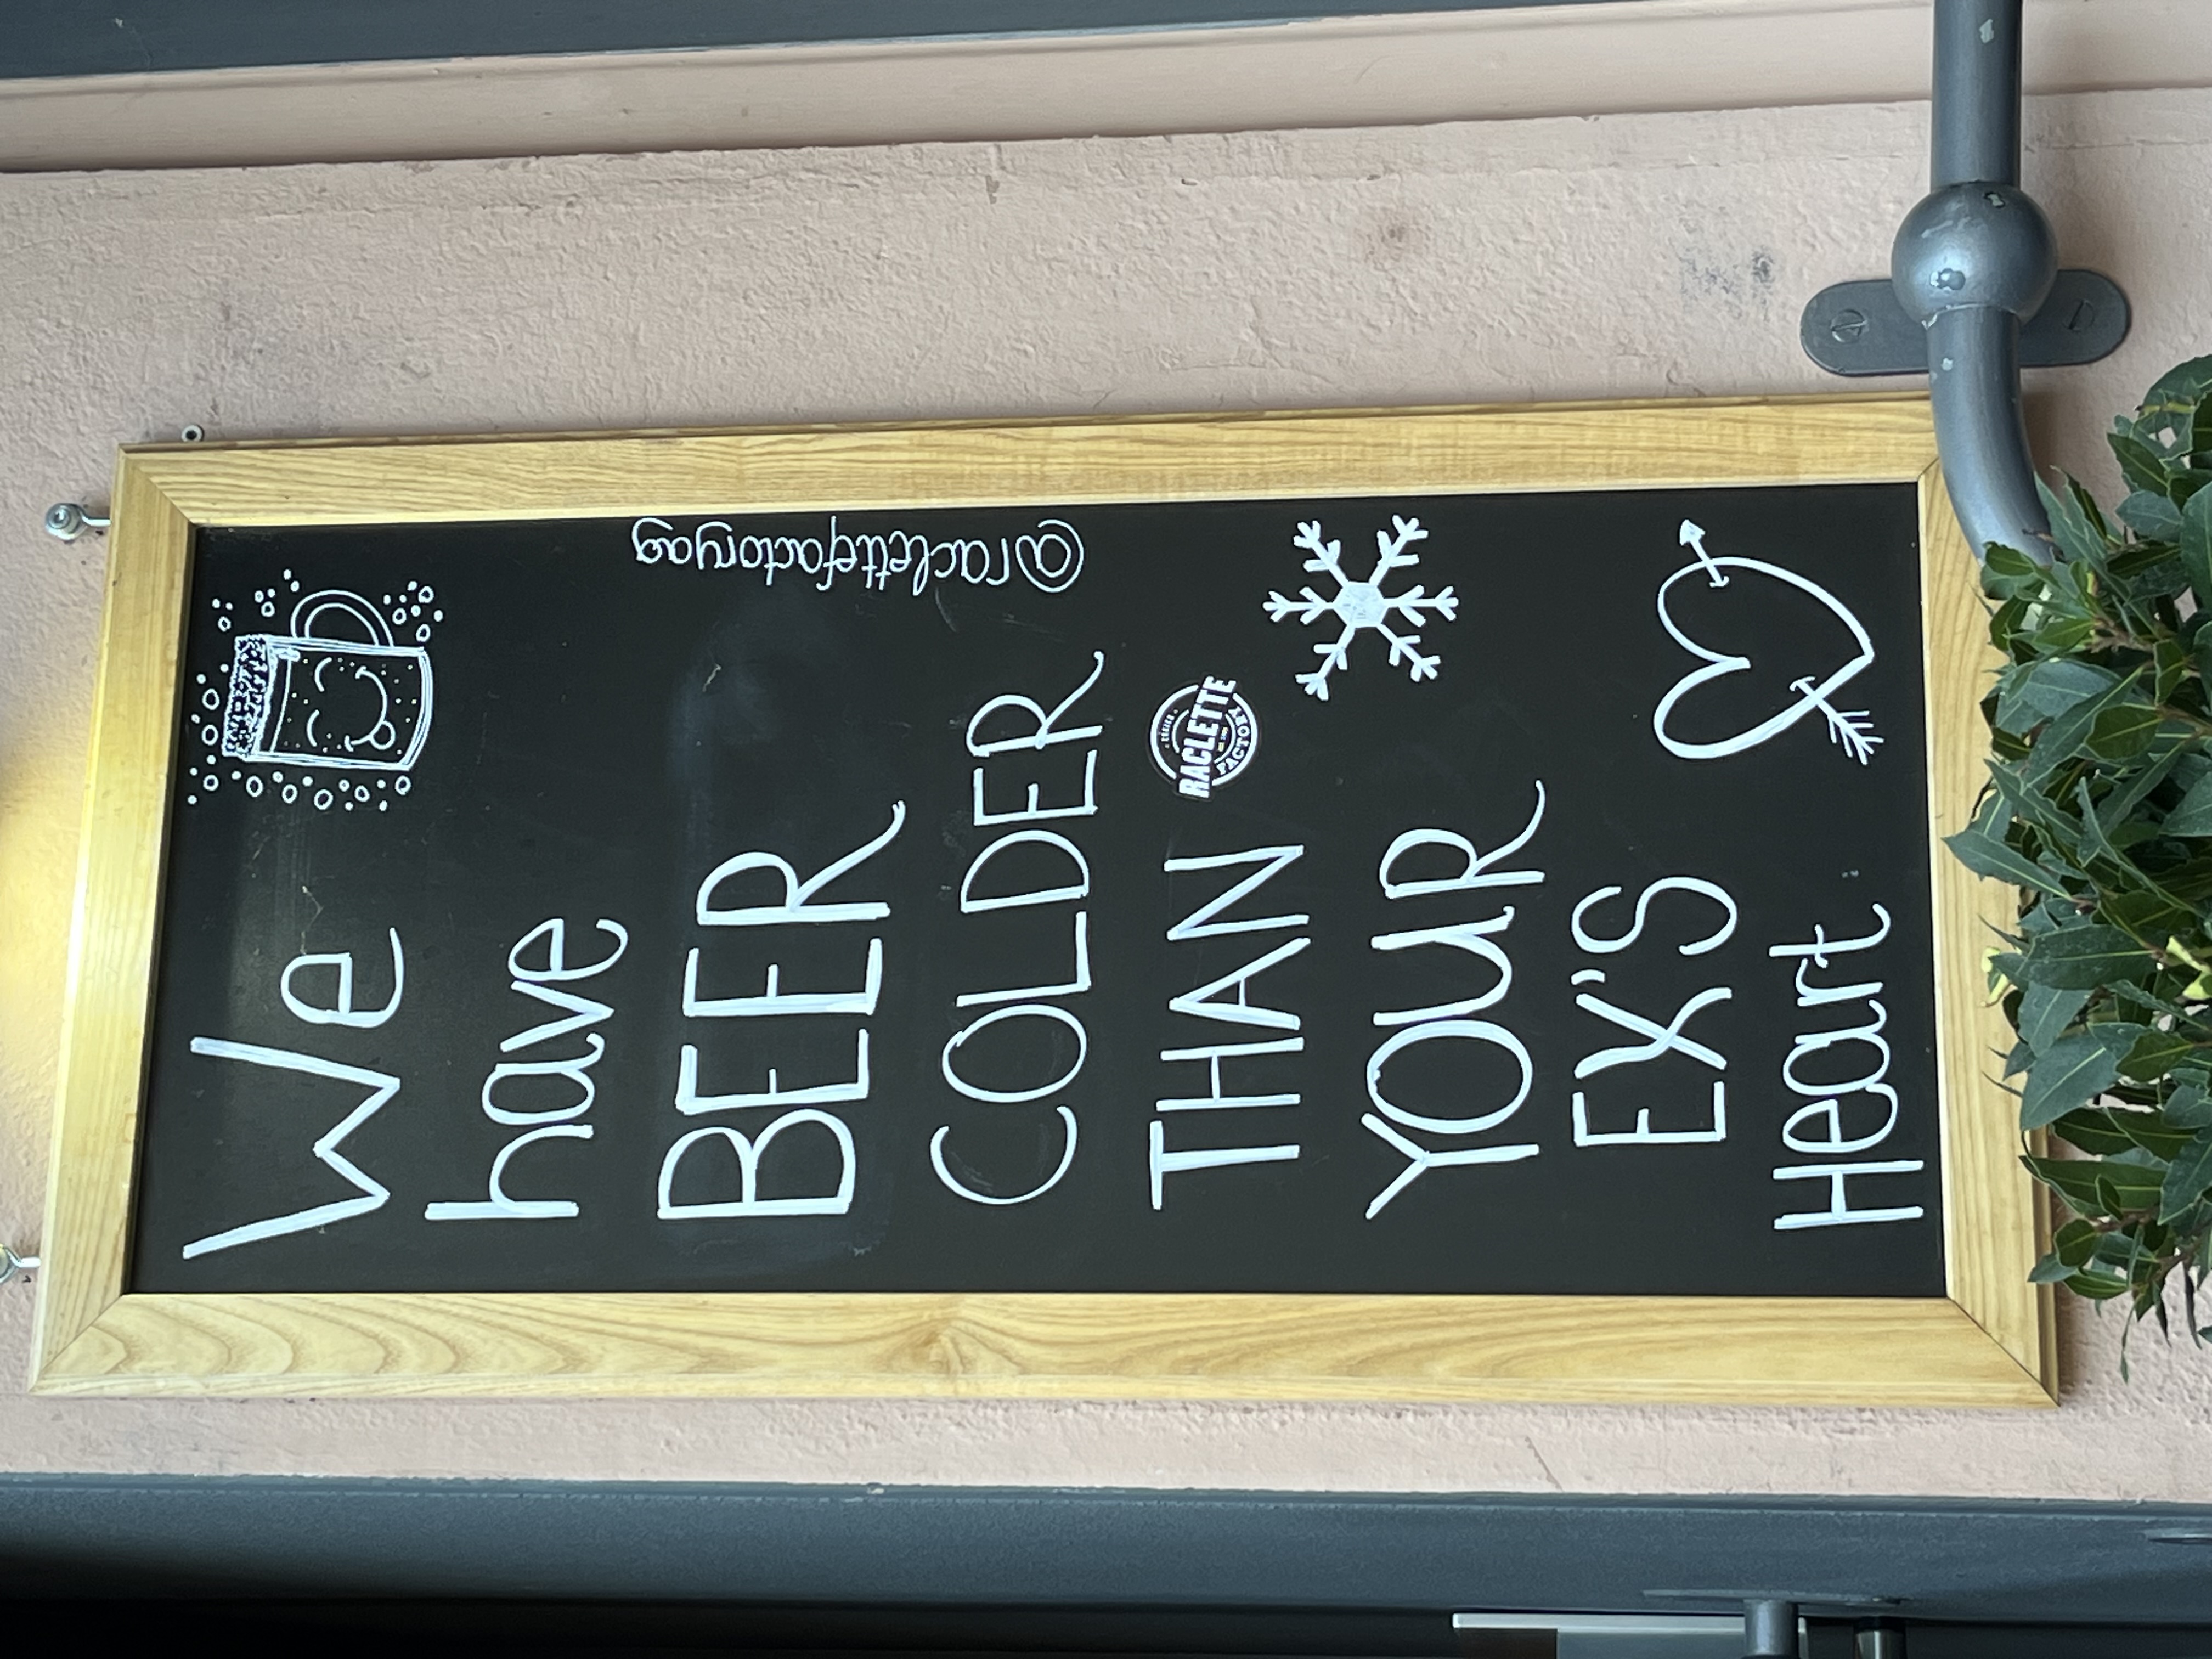 We
have
BEER
COLDER
THAN
YOUR
EX'S
Heart
@raclettefactoryag
RACLETTE
FACTORY